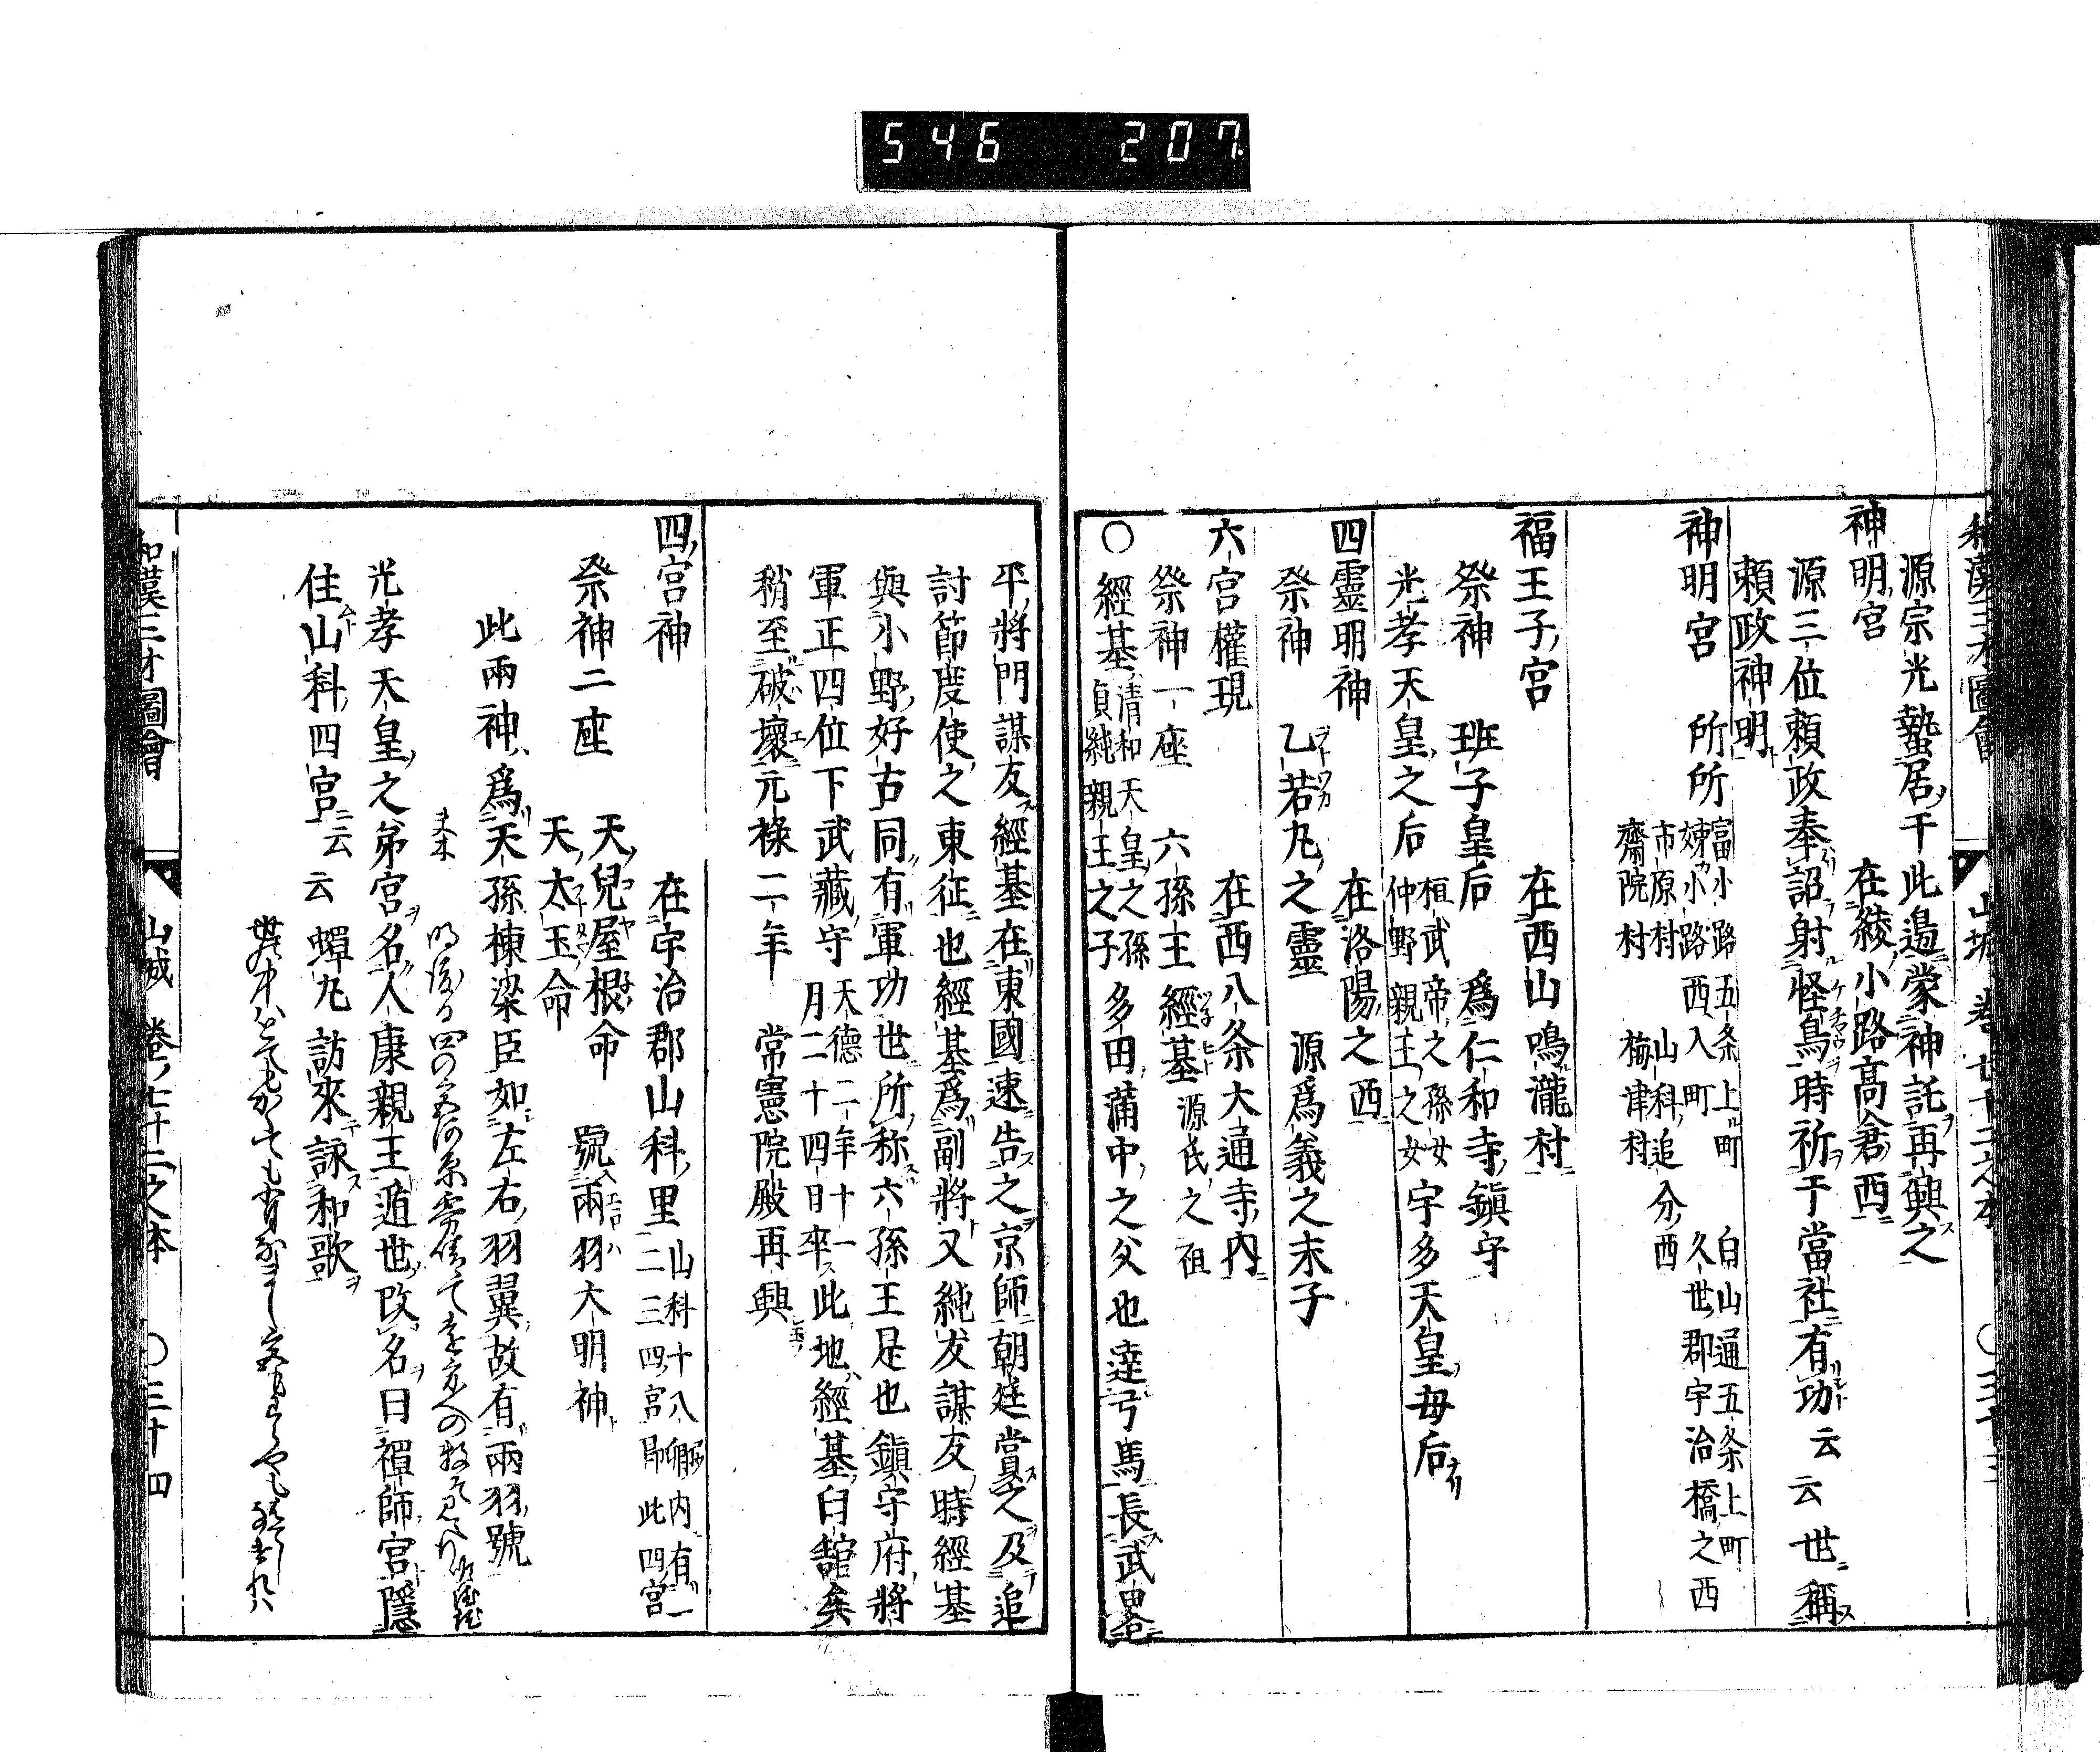 546 207
和漢三才圖會 山城 卷七十二之本 〇三十三
源宗光蟄居于此邉蒙神託再興之
神明宮 在綾小路髙倉西
源三位頼政奉詔射怪鳥時祈于當社有功云云世稱
頼政神明
神明宮 所所
富小路五条上町 白山通五条上町
姉小路西入町 久世郡宇治橋之西
市原村 山科追分西
齋院村 梅津村
福王子宮 在西山鳴瀧村
祭神 班子皇后 爲仁和寺鎮守
光孝天皇之后 桓武帝之孫女 仲野親王之女 宇多天皇母后
四靈明神 在洛陽之西
祭神 乙若丸之靈 源爲義之末子
六宮權現 在西八条大通寺内
祭神一座 六孫王經基 源氏之祖
〇經基 清和天皇之孫 貞純親王之子 多田蒲中之父也達弓馬長武畧
平將門謀友經基在東國速告之京師朝廷賞之及追
討節度使之東征也經基爲副將又純友謀友時經基
與小野好古同有軍功世所称六孫王是也鎮守府將
軍正四位下武藏守 天德二年十一 月二十四日卒 此地經基臼舘矣
稍至破壞元祿二年 常憲院殿再興
四宮神 在宇治郡山科里 山科十八郷内有一 二三四宮昂此四宮
祭神二座 天兒屋根命 天太玉命 號兩羽大明神
此兩神爲天孫棟梁臣如左右羽翼故有兩羽號
光孝天皇之弟宮名人康親王遁世改名曰禪師宮隱
住山科四宮云云 蟬丸訪來詠和歌
和漢三才圖會 山城 卷ノ七十二之本 〇三十四